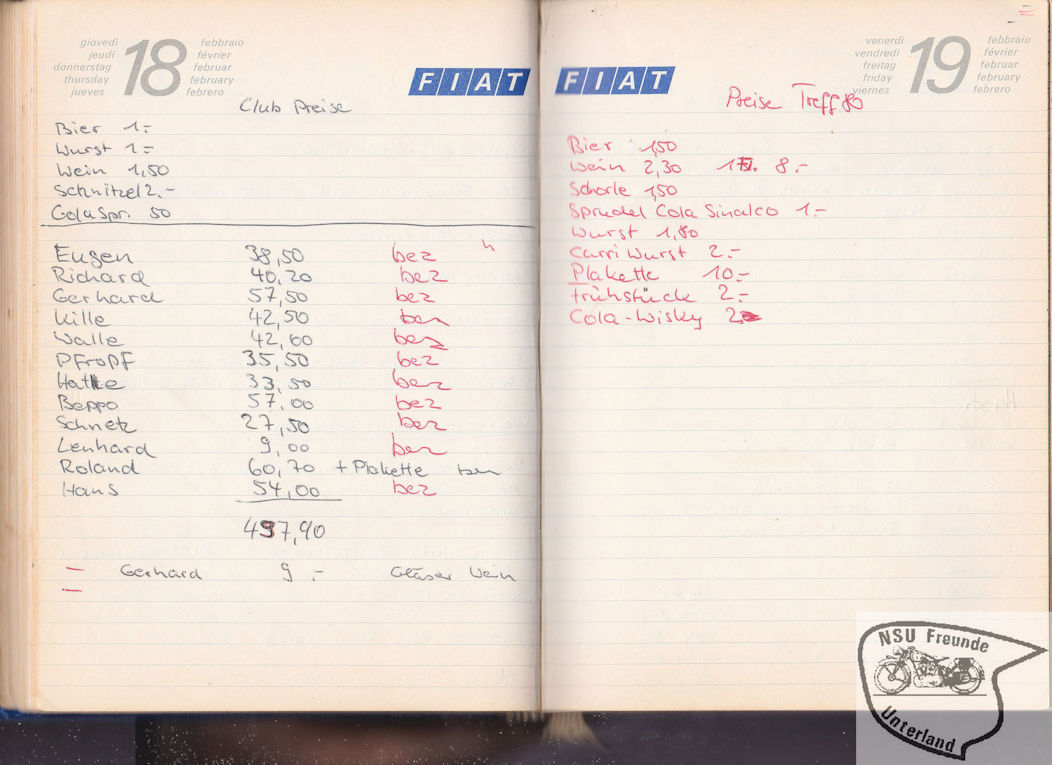 giovedì 18 febbraio
jeudi février
donnerstag februar
thursday february
jueves febrero
FIAT
Club Preise
Bier 1.-
Wurst 1.-
Wein 1,50
Schnitzel 2.-
Cola Spr. 50
Eugen 38,50 bez
Richard 40,20 bez
Gerhard 57,50 bez
Kille 42,50 bez
Walle 42,60 bez
Pfropf 35,50 bez
Hatte 33,50 bez
Beppo 57,00 bez
Schnetz 27,50 bez
Lenhard 9,00 bez
Roland 60,70 + Plakette bez
Hans 54,00 bez
497,90
Gerhard 9.- Gläser Wein
FIAT
venerdì 19 febbraio
vendredi février
freitag februar
friday february
viernes febrero
Preise Treff 80
Bier 1,50
Wein 2,30 1 Fl. 8.-
Schorle 1,50
Sprudel Cola Sinalco 1.-
Wurst 1,80
Curri Wurst 2.-
Plakette 10.-
Frühstücke 2.-
Cola-Wisky 2
NSU Freunde
Unterland